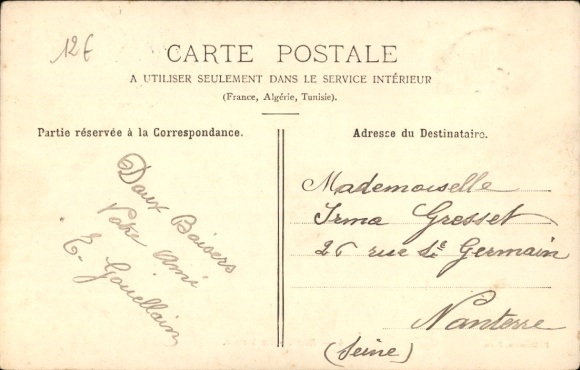 12€
CARTE POSTALE
A UTILISER SEULEMENT DANS LE SERVICE INTÉRIEUR
(France, Algérie, Tunisie).
Partie réservée à la Correspondance.
Doux Baisers
Votre Ami
E. Gouellain
Adresse du Destinataire.
Mademoiselle
Irma Gresset
26 rue St Germain
Nanterre
(Seine)